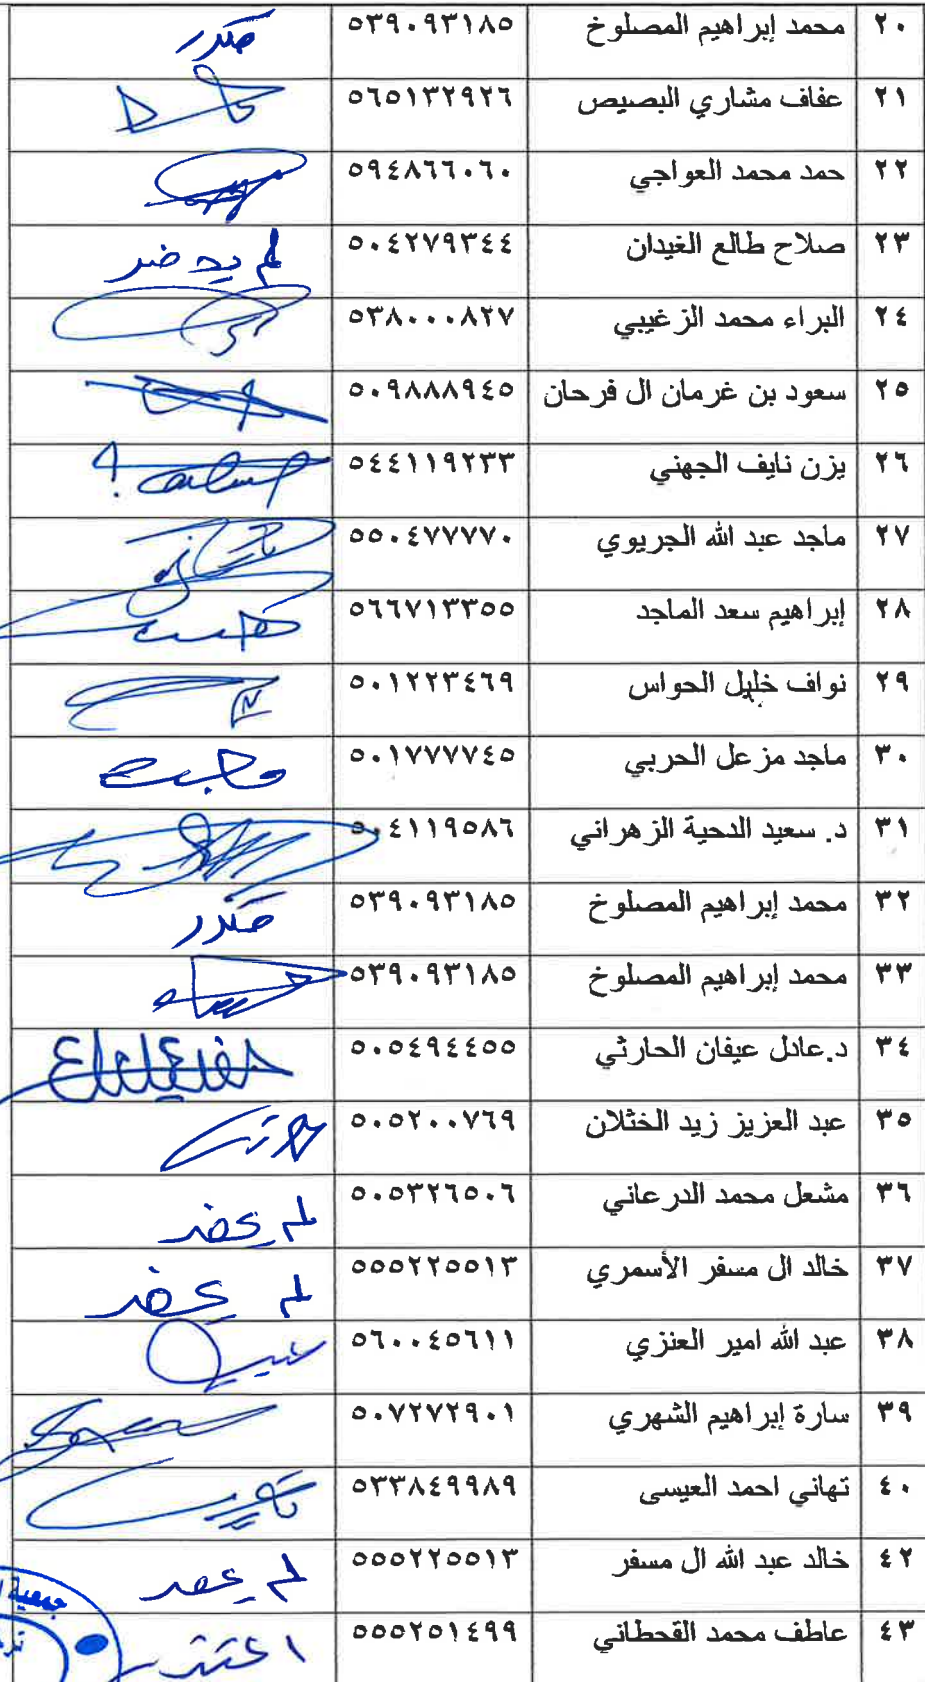 ٢٠ محمد إبراهيم المصلوخ ٥٣٩٠٩٣١٨٥ مكرر
٢١ عفاف مشاري البصيص ٥٦٥١٣٢٩٢٦
٢٢ حمد محمد العواجي ٥٩٤٨٦٦٠٦٠
٢٣ صلاح طالع الغيدان ٥٠٤٢٧٩٣٤٤ لم يحضر
٢٤ البراء محمد الزغيبي ٥٣٨٠٠٠٨٢٧
٢٥ سعود بن غرمان ال فرحان ٥٠٩٨٨٨٩٤٥
٢٦ يزن نايف الجهني ٥٤٤١١٩٢٣٣
٢٧ ماجد عبد الله الجريوي ٥٥٠٤٧٧٧٧٠
٢٨ إبراهيم سعد الماجد ٥٦٦٧١٣٣٥٥
٢٩ نواف خليل الحواس ٥٠١٢٢٣٤٦٩
٣٠ ماجد مزعل الحربي ٥٠١٧٧٧٧٤٥
٣١ د. سعيد الدحية الزهراني ٥٠٤١١٩٥٨٦
٣٢ محمد إبراهيم المصلوخ ٥٣٩٠٩٣١٨٥ مكرر
٣٣ محمد إبراهيم المصلوخ ٥٣٩٠٩٣١٨٥
٣٤ د.عادل عيفان الحارثي ٥٠٥٤٩٤٤٥٥
٣٥ عبد العزيز زيد الخثلان ٥٠٥٢٠٠٧٦٩
٣٦ مشعل محمد الدرعاني ٥٠٥٣٢٦٥٠٦ لم يحضر
٣٧ خالد ال مسفر الأسمري ٥٥٥٢٢٥٥١٣ لم يحضر
٣٨ عبد الله امير العنزي ٥٦٠٠٤٥٦١١
٣٩ سارة إبراهيم الشهري ٥٠٧٢٧٢٩٠١
٤٠ تهاني احمد العيسى ٥٣٣٨٤٩٩٨٩
٤٢ خالد عبد الله ال مسفر ٥٥٥٢٢٥٥١٣ لم يحضر
٤٣ عاطف محمد القحطاني ٥٥٥٢٥١٤٩٩ اعتذر
جمعية